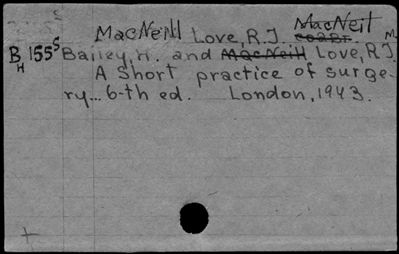 MacNeill Love, R.J. MacNeil
B 155 Bailey, H. and MacNeill Love, R.J. M
H
A short practice of surge-
ry... 6-th ed. London, 1943.